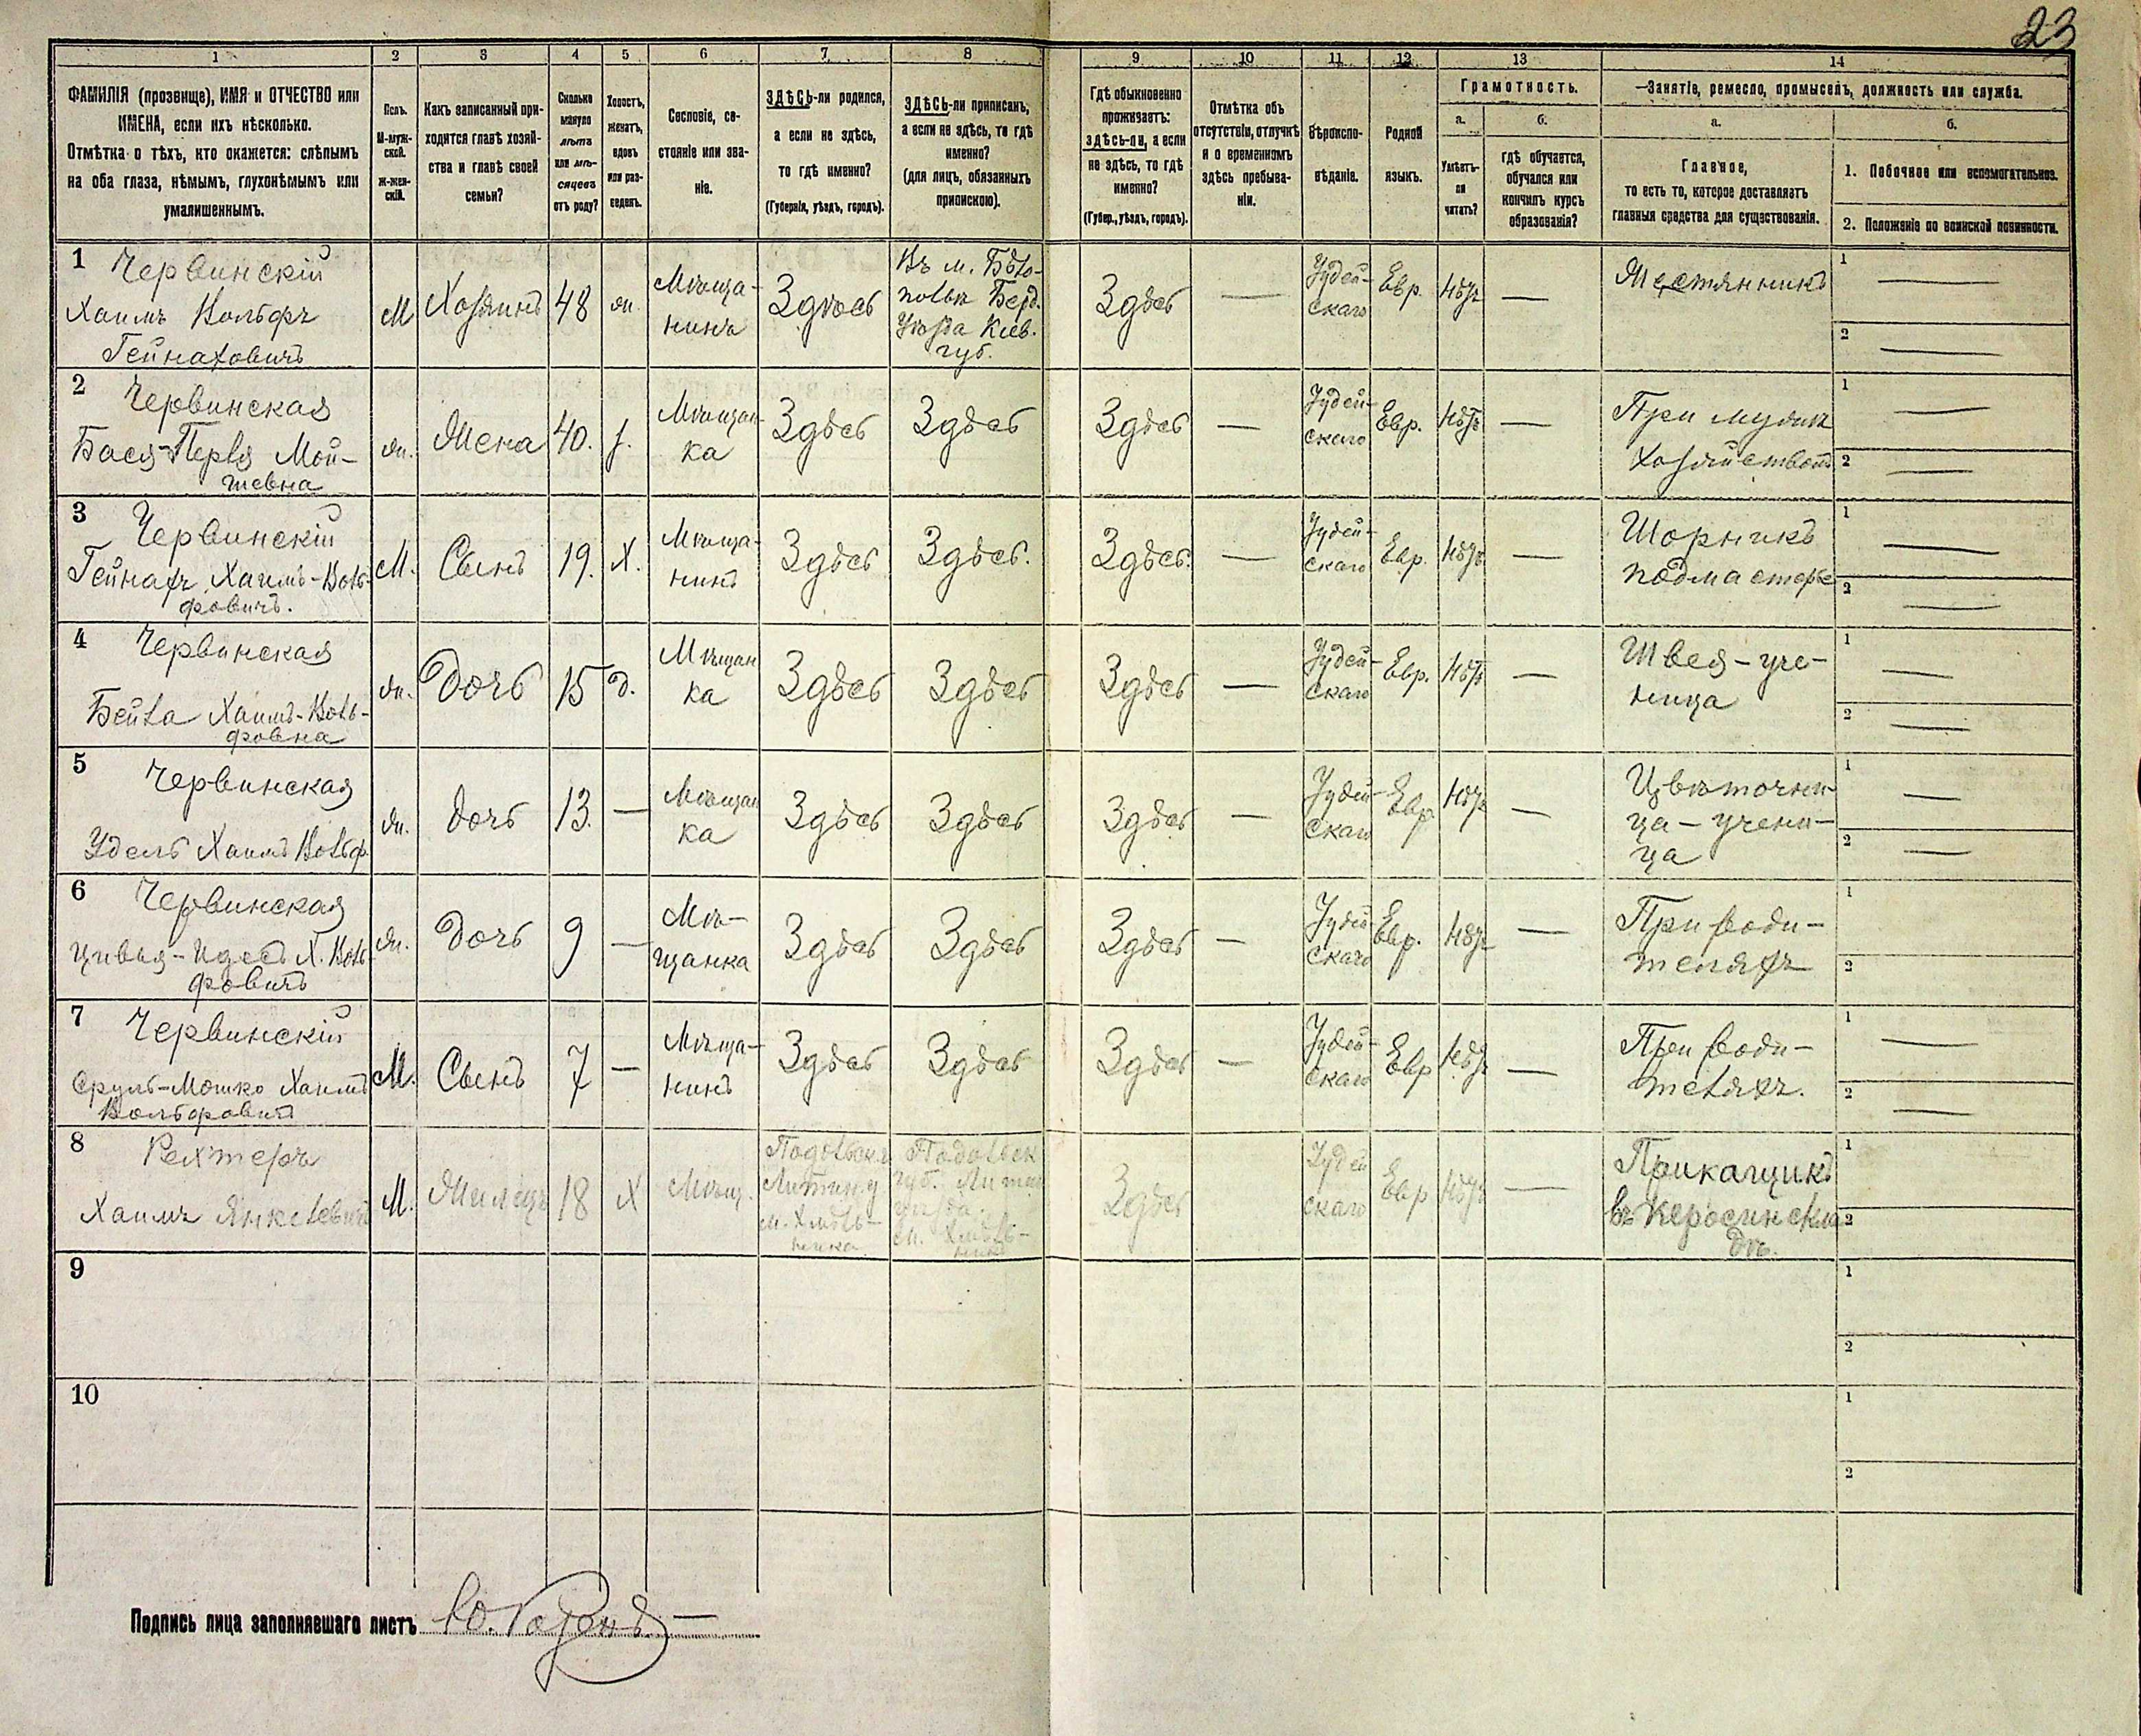 23
1 2 3 4 5 6 7 8 9 10 11 12 13 14
ФАМИЛІЯ (прозвище), ИМЯ и ОТЧЕСТВО или
ИМЕНА, если ихъ нѣсколько.
Отмѣтка о тѣхъ, кто окажется: слѣпымъ
на оба глаза, нѣмымъ, глухонѣмымъ или
умалишеннымъ.
Полъ.
М-муж-
ской.
Ж-жен-
скій.
Какъ записанный при-
ходится главѣ хозяй-
ства и главѣ своей
семьи?
Сколько
минуло
лѣтъ
или мѣ-
сяцевъ
отъ роду?
Холостъ,
женатъ,
вдовъ
или раз-
веденъ.
Сословіе, со-
стояніе или зва-
ніе.
ЗДѢСЬ-ли родился,
а если не здѣсь,
то гдѣ именно?
(Губернія, уѣздъ, городъ).
ЗДѢСЬ-ли приписанъ,
а если не здѣсь, то гдѣ
именно?
(для лицъ, обязанныхъ
припискою).
Гдѣ обыкновенно
проживаетъ:
здѣсь-ли, а если
не здѣсь, то гдѣ
именно?
(Губер., уѣздъ, городъ).
Отмѣтка объ
отсутствіи, отлучкѣ
и о временномъ
здѣсь пребыва-
ніи.
Вѣроиспо-
вѣданіе.
Родной
языкъ.
Грамотность.
а.
Умѣетъ-
ли
читать?
б.
гдѣ обучается,
обучался или
кончилъ курсъ
образованія?
Занятіе, ремесло, промыселъ, должность или служба.
а.
Главное,
то есть то, которое доставляетъ
главныя средства для существованія.
б.
1. Побочное или вспомогательное.
2. Положеніе по воинской повинности.
1 Червинскій
Хаимъ Вольфъ
Гейнаховичъ
М Хозяинъ 48 ж.
Мѣща-
нинъ
Здѣсь
Въ м. Бѣло-
полье Берд.
Уѣзда Кіев.
губ.
Здѣсь —
Іудей-
скаго
Евр. нѣтъ —
Жестянникъ
1 —
2 —
2 Червинская
Бася-Перля Мой-
шевна
ж. Жена 40. з.
Мѣщан-
ка
Здѣсь Здѣсь Здѣсь —
Іудей-
скаго
Евр. нѣтъ —
При мужѣ
хозяйствомъ
1 —
2 —
3 Червинскій
Гейнахъ Хаимъ-Воль-
фовичъ.
М. Сынъ 19. Х.
Мѣща-
нинъ
Здѣсь Здѣсь. Здѣсь. —
Іудей-
скаго
Евр. нѣтъ —
Шорникъ
подмастерье
1 —
2 —
4 Червинская
Бейла Хаимъ-Воль-
фовна
ж. Дочь 15 д.
Мѣщан
ка
Здѣсь Здѣсь Здѣсь —
Іудей-
скаго
Евр. нѣтъ —
Швея-уче-
ница
1 —
2 —
5 Червинская
Удель Хаимъ Вольф.
ж. дочь 13. —
Мѣщан
ка
Здѣсь Здѣсь Здѣсь —
Іудей-
скаго
Евр нѣтъ —
Цвѣточни-
ца-учени-
ца
1 —
2 —
6 Червинская
Цивья-Идесъ Х. Воль-
фовичъ
ж. Дочь 9 —
Мѣ-
щанка
Здѣсь Здѣсь Здѣсь —
Іудей
скаго
Евр. нѣтъ —
При роди-
теляхъ
1
2
7 Червинскій
Сруль-Мошко Хаимъ
Вольфовичъ
М. Сынъ 7 —
Мѣща-
нинъ
Здѣсь Здѣсь Здѣсь —
Іудей-
скаго
Евр нѣтъ —
При роди-
теляхъ.
1 —
2 —
8 Рехтеръ
Хаимъ Янкелевичъ
М. Жилецъ 18 Х Мѣщ.
Подольск.
Литин. у
м. Хмѣль-
ника
Подольск
губ. Литин
уѣзда.
м. Хмѣль-
ник
Здѣсь
Іудей
скаго
Евр нѣтъ —
Прикащикъ
въ керосин скла
дѣ.
1
2
9
1
2
10
1
2
Подпись лица заполнявшаго листъ Ю. Розенъ